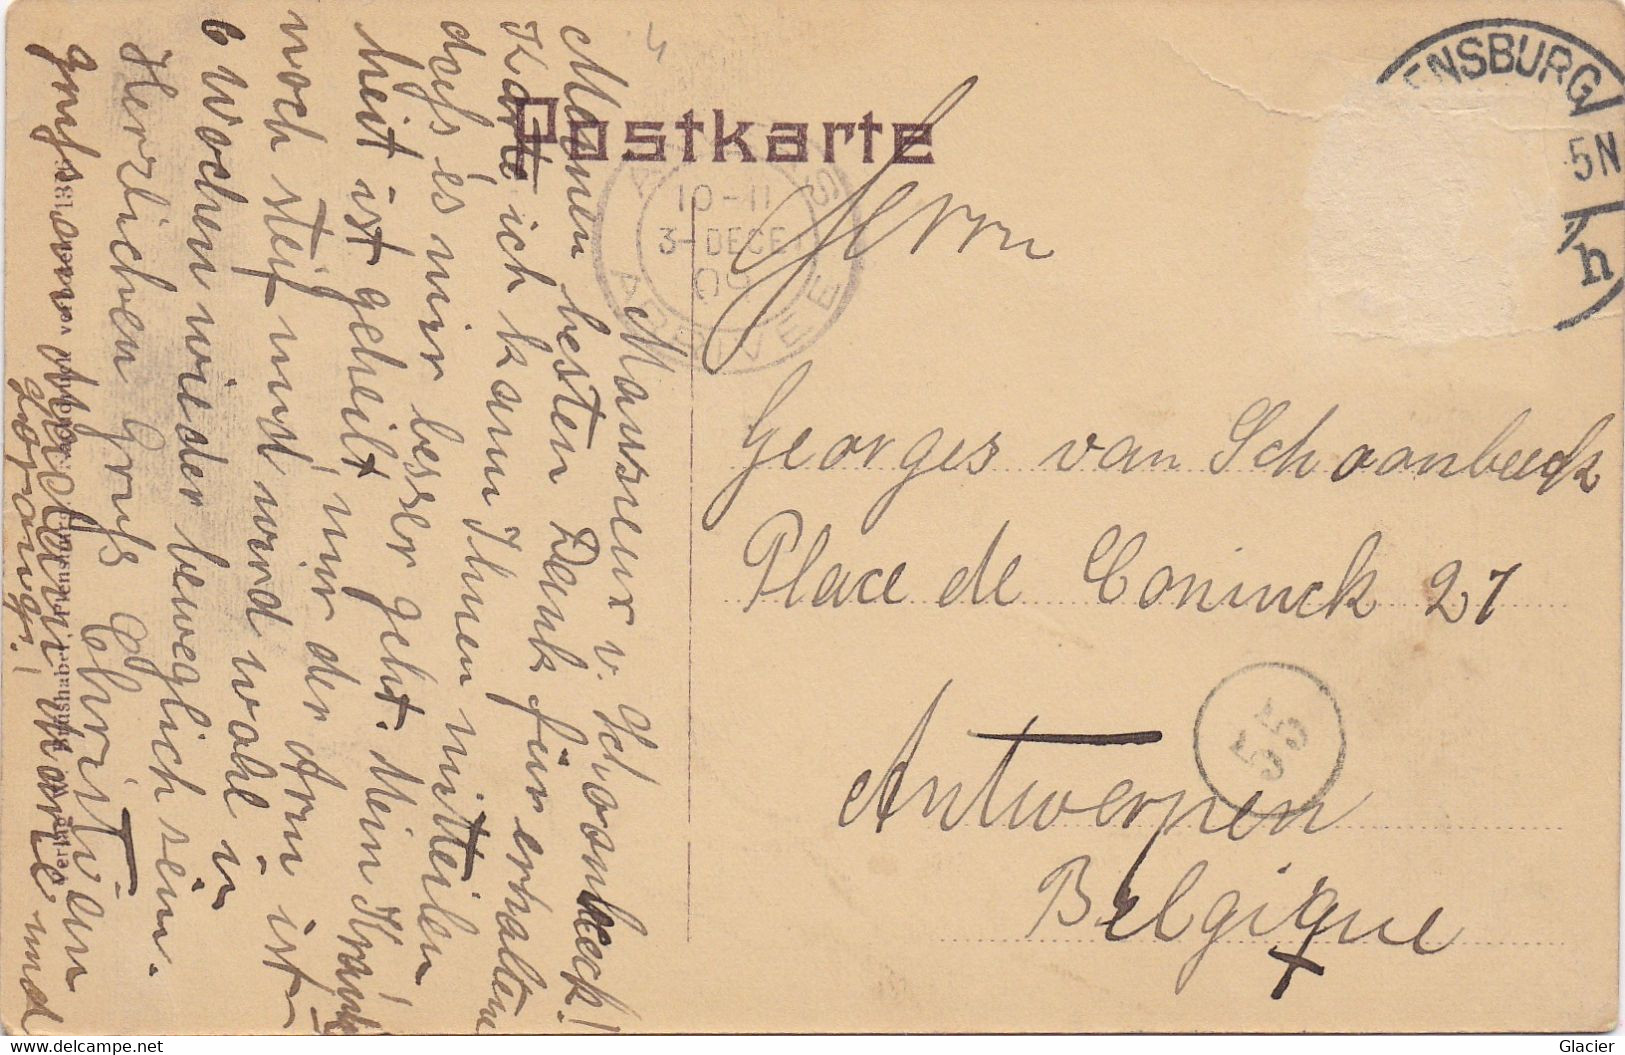 Postkarte
ENSBURG
5N
h
10-11
3-DECE
09
ARRIVEE
Herrn
Georges van Schoonbeeck
Place de Coninck 27
Antwerpen
Belgique
55
Monsieur v. Schoonbeeck!
Meinen besten Dank für erhaltene
Karte ich kann Ihnen mitteilen
dass es mir besser geht. Mein Krank
heit ist geheilt, nur der Arm ist
noch steif und wird wohl in
6 Wochen wieder beweglich sein.
Herzlichen Gruss Christian
Gruss an Marie und
Verlag Kunsthandel Flensburg
Glacier